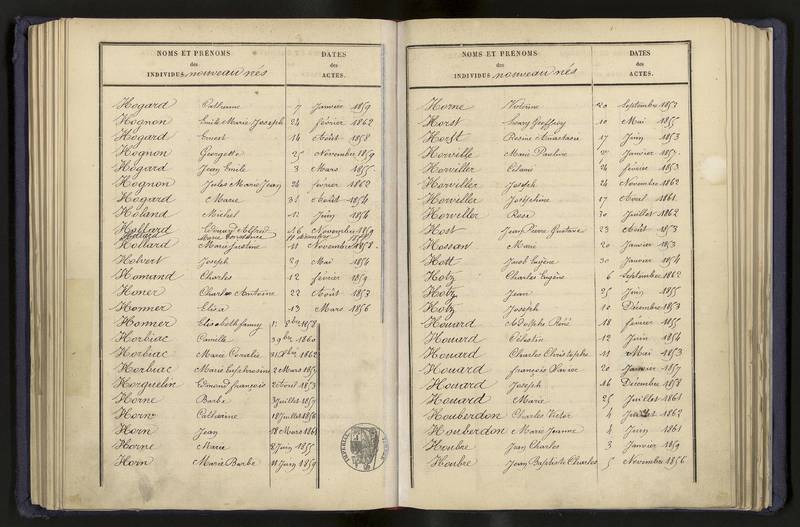 NOMS ET PRÉNOMS DATES
des des
INDIVIDUS nouveau nés ACTES.
Hogard Catherine 7 Janvier 1859
Hognon Emile Marie Joseph 24 février 1862
Hogard Ernest 14 Août 1858
Hognon Georgette 25 Novembre 1859
Hogard Jean Emile 3 Mars 1855
Hognon Jules Marie Jean 24 février 1862
Hogard Marie 31 Août 1854
Holand Michel 12 Juin 1854
Hollard Edmond Alfred 16 Novembre 1859
Hollard Marie Constance 11
Hollard Marie Justine 11 Novembre 1858
Holvert Joseph 29 Mai 1854
Homand Charles 12 février 1859
Honer Charles Antoine 22 Août 1853
Honner Elisa 13 Mars 1856
Honner Elisabeth fanny 8bre 1858
Horbiac Camille 3 9bre 1860
Horbiac Marie Coralie 31 Xbre 1862
Horbiac Marie Euphrosine 2 Mars 1857
Horguelin Edmond françois 20 Août 1853
Horne Barbe Juillet 1857
Horn Catherine 18 Juillet 1856
Horn Jean 18 Mars 1861
Horne Marie 8 Juin 1855
Horn Marie Barbe 11 Juin 1859
NOMS ET PRÉNOMS DATES
des des
INDIVIDUS nouveau nés ACTES.
Horne Victorine 20 Septembre 1853
Horst Geoffroy 10 Mai 1855
Horst Rosine Anastasie 17 Juin 1853
Horville Marie Pauline Janvier 1853
Horviller 24 février 1853
Horviller Joseph 24 Novembre 1862
Horviller Joséphine 17 Avril 1861
Horviller Rose 30 Juillet 1862
Host Jean Pierre Gustave 23 Août 1853
Hossan Marie 20 Janvier 1853
Hott Jacob Eugène 30 Janvier 1854
Hotz Charles Eugène 6 Septembre 1862
Hotz Jean 25 Juin 1855
Hotz Joseph 10 Décembre 1853
Houard Adolphe René 18 février 1855
Houard Célestin 12 Juin 1854
Houard Charles Christophe 11 Mai 1853
Houard françois Xavier 20 Janvier 1857
Houard Joseph 16 Décembre 1858
Houard Marie 25 Juillet 1861
Houberdon Charles Victor 4 1862
Houberdon Marie Jeanne 4 Juin 1861
Houbre Jean Charles 3 Janvier 1859
Houbre Jean Baptiste Charles 5 Novembre 1856